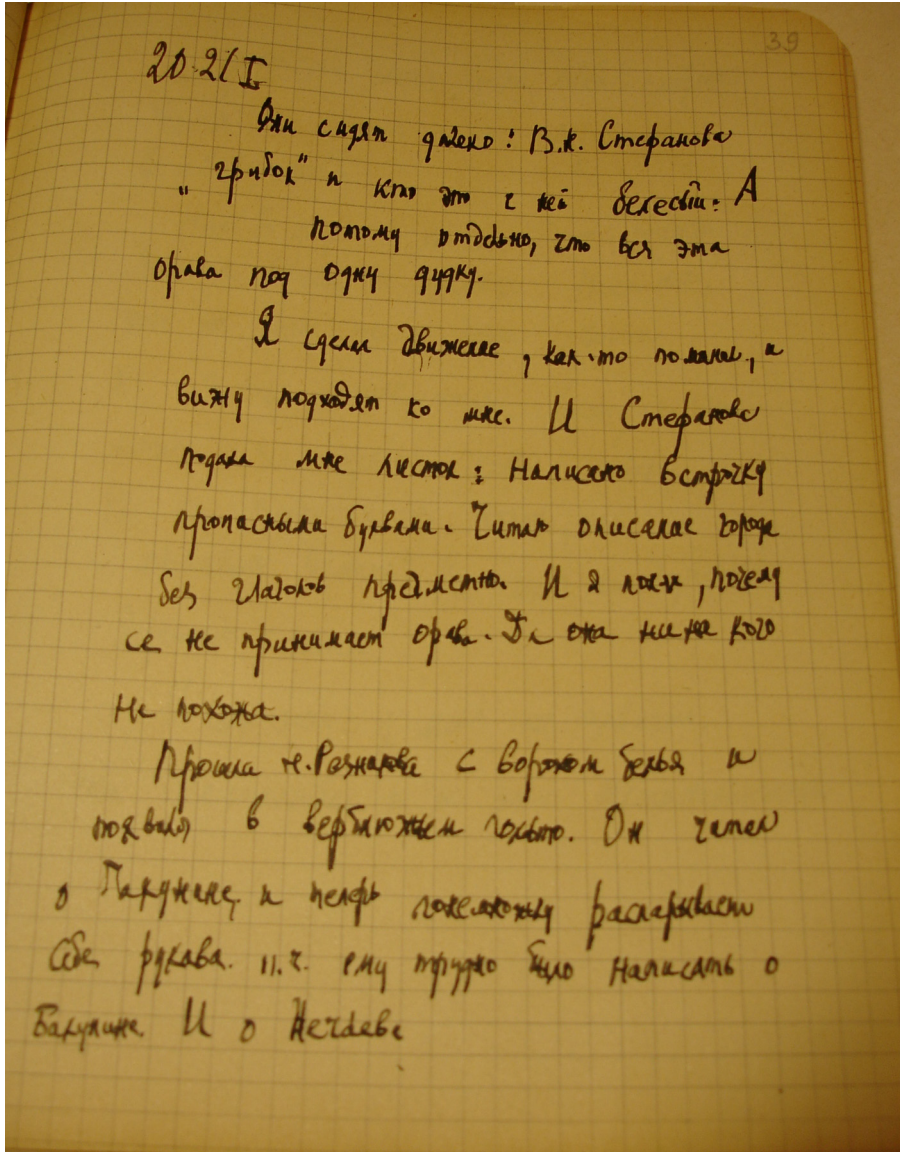 39
20-21 I
Они сидят далеко: В.К. Стефанова
„грибок" и кто это с ней белесый. А
потому отдельно, что вся эта
орава под одну дудку.
Я сделал движение, как-то поманил, и
вижу подходят ко мне. И Стефанова
подала мне листок: Написано в строчку
прописными буквами. Читаю описание города
без глаголов предметно. И я понял, почему
ее не принимает орава. Да она ни на кого
не похожа.
Прошла с ворохом белья и
появился в верблюжьем пальто. Он читал
о Бакунине, и теперь понемножку распарывает
себе рукава. п.ч. ему трудно было написать о
Бакунине И о Нечаеве